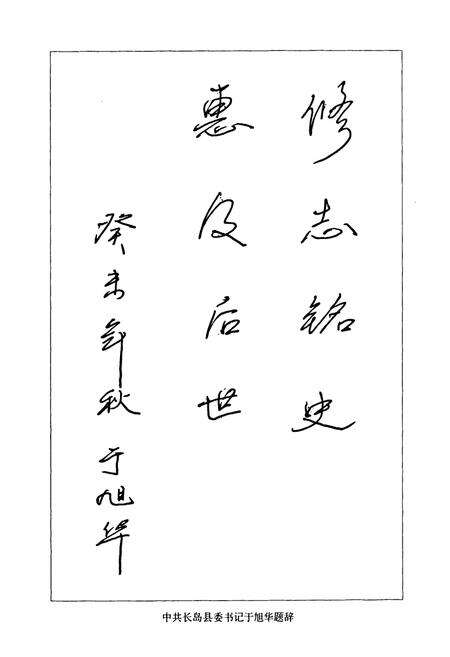 修志铭史
惠及后世
癸未年秋 于旭华
中共长岛县委书记于旭华题辞